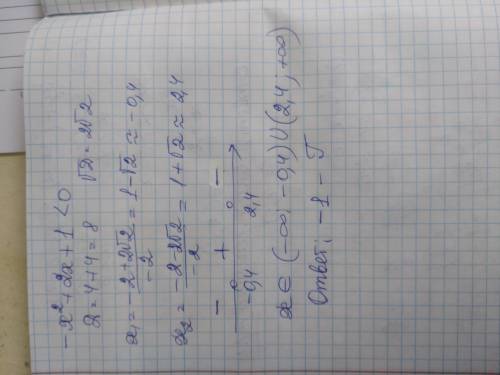 -x² + 2x + 1 < 0
D = 4 + 4 = 8   √D = 2√2
x₁ = (-2 + 2√2)/(-2) = 1 - √2 ≈ -0,4
x₂ = (-2 - 2√2)/(-2) = 1 + √2 ≈ 2,4
-   +   -
-0,4   2,4
x ∈ (-∞; -0,4) ∪ (2,4; +∞)
Ответ: -1 -